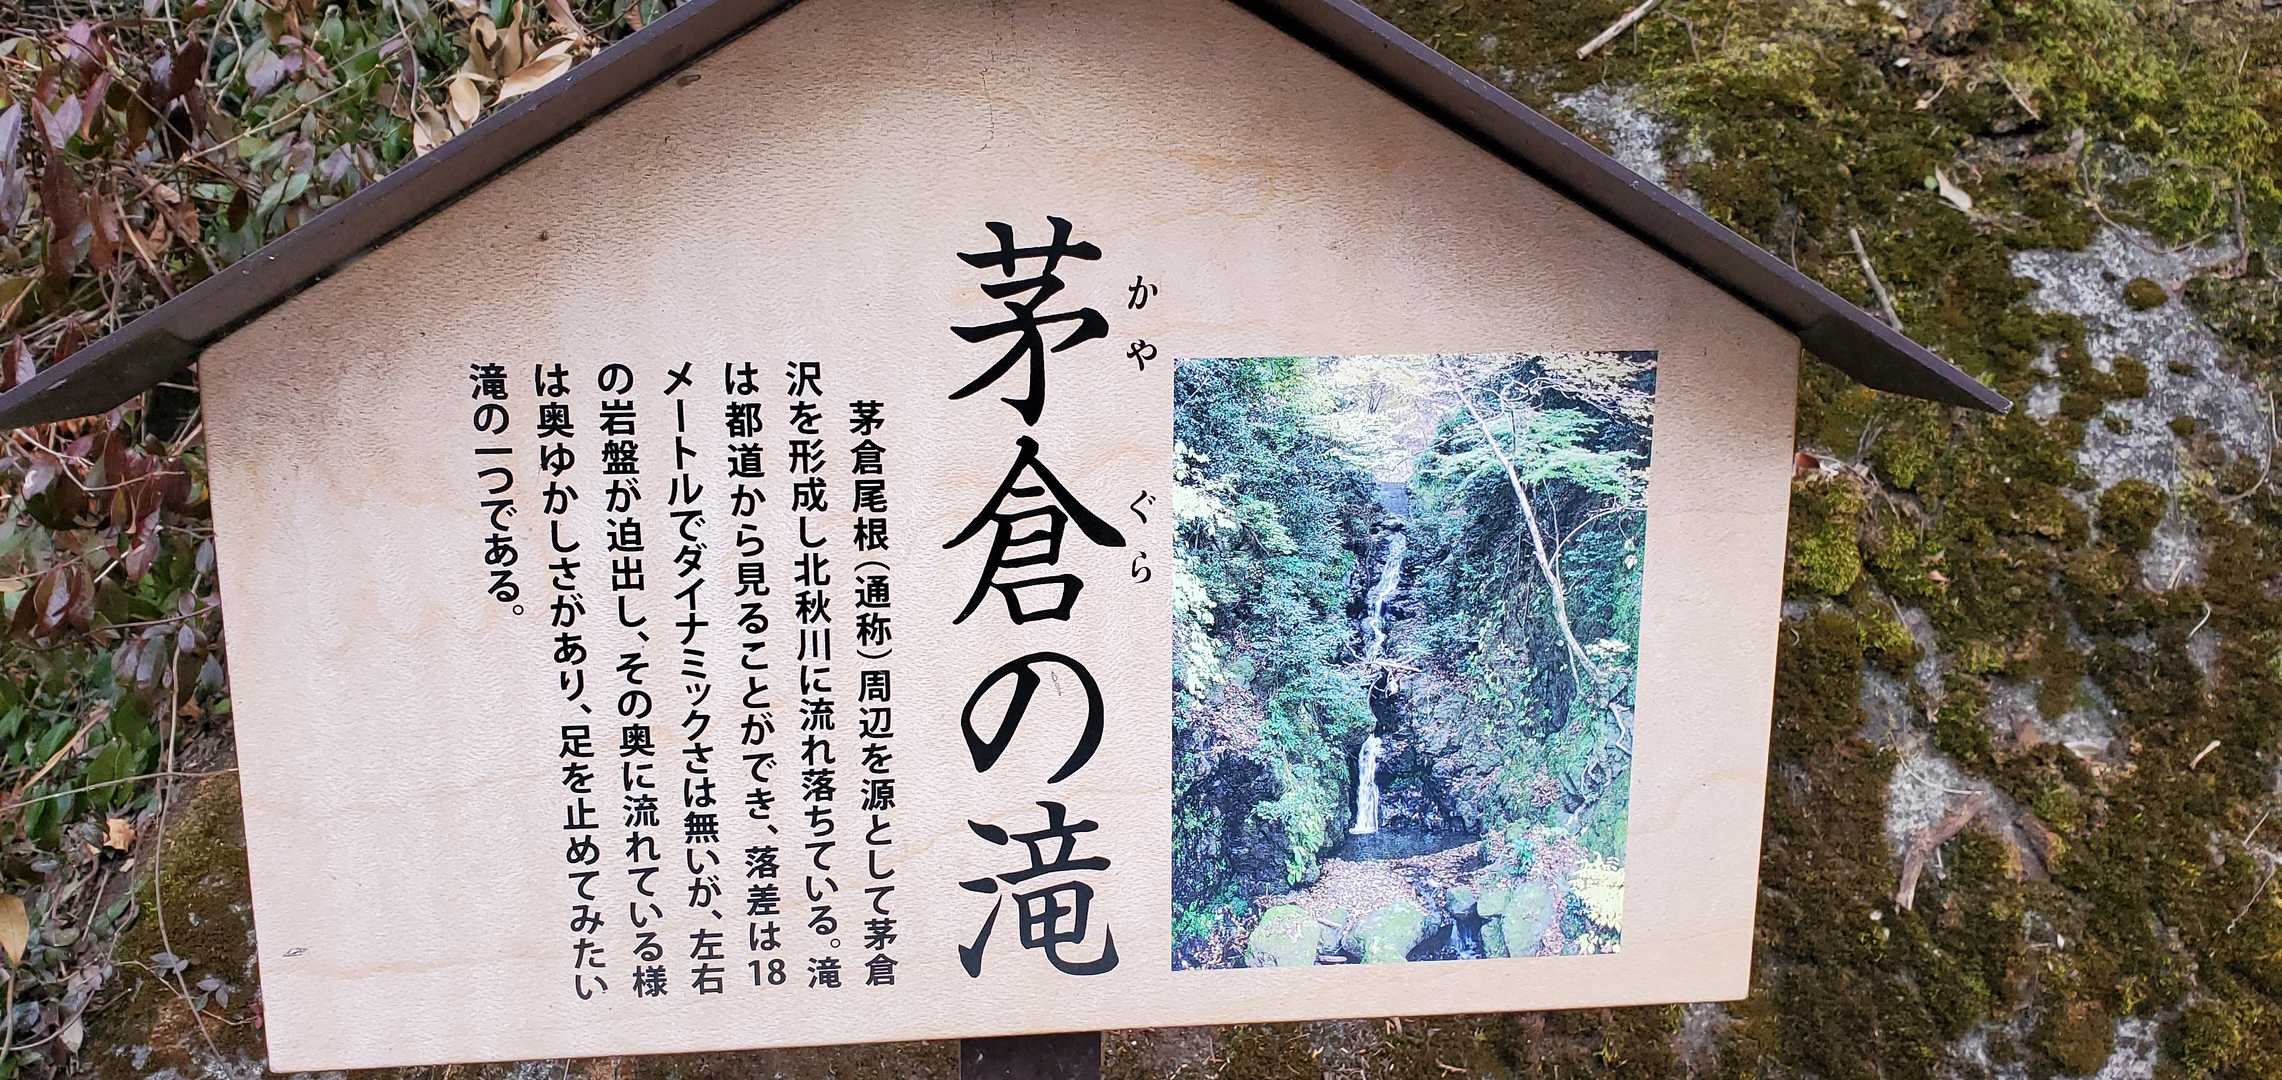 茅倉の滝
かや ぐら
茅倉尾根(通称)周辺を源として茅倉
沢を形成し北秋川に流れ落ちている。滝
は都道から見ることができ、落差は18
メートルでダイナミックさは無いが、左右
の岩盤が迫出し、その奥に流れている様
は奥ゆかしさがあり、足を止めてみたい
滝の一つである。